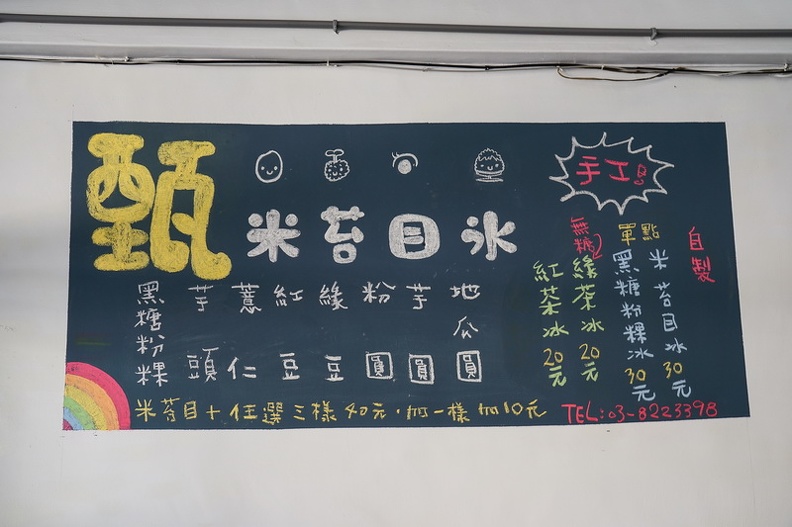 甄
米苔目冰
黑糖粉粿
芋頭
薏仁
紅豆
綠豆
粉圓
芋圓
地瓜圓
米苔目+任選三樣40元，加一樣加10元
手工
自製
單點
米苔目冰30元
黑糖粉粿冰30元
無糖
綠茶冰20元
紅茶冰20元
TEL:03-8223398